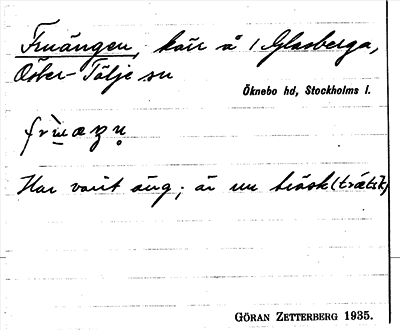 Fruängen, kärr å 1 Glasberga,
Öster-Tälje sn
Öknebo hd, Stockholms l.
Har varit äng; är nu träsk
GÖRAN ZETTERBERG 1935.